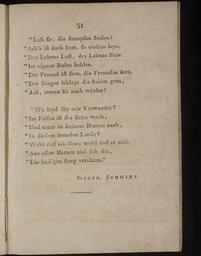 51
"Laſs ſie, die ſtumpfen Seelen!
"Ach's iſt doch hart, ſo einſam ſeyn,
"Des Lebens Luſt, des Lebens Pein
"Im eignen Buſen hehlen.
"Der Freund iſt fern, die Freundin fern,
"Der Sänger ſchlägt die Saiten gern,
"Ach, tönten ſie auch wieder!
"Wo ſeyd ihr mir Verwandte?
"Im Felſen iſt des Echo wach,
"Und tönt in keinem Herzen nach,
"In dieſem fremden Lande?
"Wohl rief ich ihm: wohl rief es mir.
"Aus allen Herzen
"Die heil'gen Sang